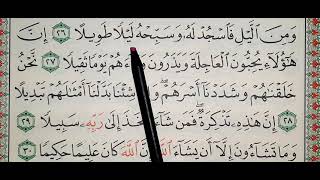 وَمِنَ ٱلَّيۡلِ فَٱسۡجُدۡ لَهُۥ وَسَبِّحۡهُ لَيۡلٗا طَوِيلًا ٢٦ إِنَّ
هَٰٓؤُلَآءِ يُحِبُّونَ ٱلۡعَاجِلَةَ وَيَذَرُونَ يَوۡمٗا ثَقِيلٗا ٢٧ نَّحۡنُ
خَلَقۡنَٰهُمۡ وَشَدَدۡنَآ أَسۡرَهُمۡۖ شِئۡنَا بَدَّلۡنَآ أَمۡثَٰلَهُمۡ تَبۡدِيلًا
٢٨ إِنَّ هَٰذِهِۦ تَذۡكِرَةٞۖ فَمَن شَآءَ إِلَىٰ رَبِّهِۦ سَبِيلٗا ٢٩
وَمَا تَشَآءُونَ إِلَّآ أَن يَشَآءَ ٱللَّهَ كَانَ عَلِيمًا حَكِيمٗا ٣٠